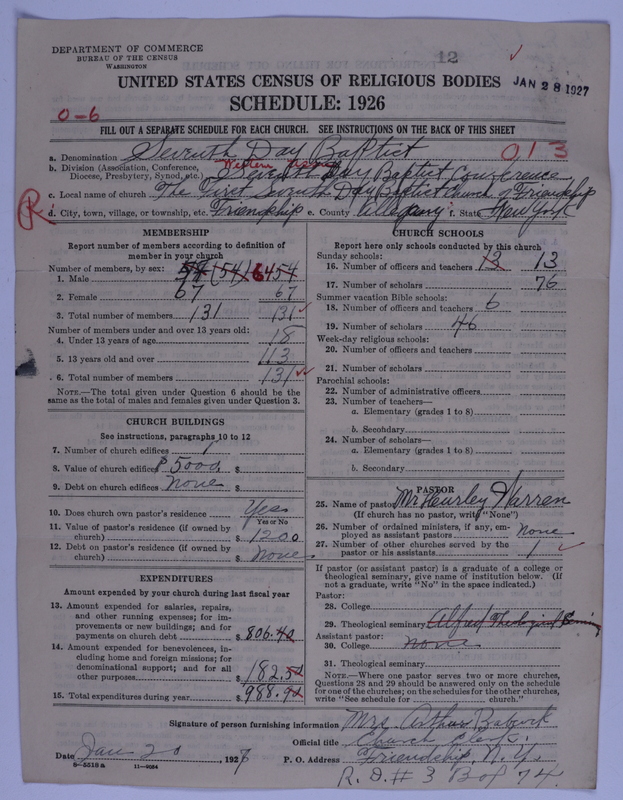 DEPARTMENT OF COMMERCE
BUREAU OF THE CENSUS
WASHINGTON
12
UNITED STATES CENSUS OF RELIGIOUS BODIES
JAN 28 1927
SCHEDULE: 1926
0-6
FILL OUT A SEPARATE SCHEDULE FOR EACH CHURCH. SEE INSTRUCTIONS ON THE BACK OF THIS SHEET
a. Denomination Seventh Day Baptist
013
b. Division (Association, Conference, Diocese, Presbytery, Synod, etc.) Western Seventh Day Baptist Conference
c. Local name of church The First Seventh Day Baptist Church of Friendship
R
d. City, town, village, or township, etc. Friendship e. County Allegany f. State New York
MEMBERSHIP
Report number of members according to definition of
member in your church
Number of members, by sex:
1. Male 54 (54) 64 54
2. Female 67 67
3. Total number of members 131 131
Number of members under and over 13 years old:
4. Under 13 years of age 18
5. 13 years old and over 113
6. Total number of members 131
NOTE.—The total given under Question 6 should be the
same as the total of males and females given under Question 3.
CHURCH BUILDINGS
See instructions, paragraphs 10 to 12
7. Number of church edifices 1
8. Value of church edifices $5000 $
9. Debt on church edifices none $
10. Does church own pastor's residence Yes
Yes or No
11. Value of pastor's residence (if owned by
church) $ 1200
12. Debt on pastor's residence (if owned by
church) $ none
EXPENDITURES
Amount expended by your church during last fiscal year
13. Amount expended for salaries, repairs,
and other running expenses; for im-
provements or new buildings; and for
payments on church debt $ 806.40
14. Amount expended for benevolences, in-
cluding home and foreign missions; for
denominational support; and for all
other purposes $ 182.54
15. Total expenditures during year $ 988.94
CHURCH SCHOOLS
Report here only schools conducted by this church
Sunday schools:
16. Number of officers and teachers 13 13
17. Number of scholars 76
Summer vacation Bible schools:
18. Number of officers and teachers 6
19. Number of scholars 46
Week-day religious schools:
20. Number of officers and teachers
21. Number of scholars
Parochial schools:
22. Number of administrative officers
23. Number of teachers—
a. Elementary (grades 1 to 8)
b. Secondary
24. Number of scholars—
a. Elementary (grades 1 to 8)
b. Secondary
PASTOR
25. Name of pastor Mr Hurley Warren
(If church has no pastor, write "None")
26. Number of ordained ministers, if any, em-
ployed as assistant pastors none
27. Number of other churches served by the
pastor or his assistants 1
If pastor (or assistant pastor) is a graduate of a college or
theological seminary, give name of institution below. (If
not a graduate, write "No" in the space indicated.)
Pastor:
28. College
29. Theological seminary Alfred Theological
Assistant pastor:
30. College none
31. Theological seminary
NOTE.—Where one pastor serves two or more churches,
Questions 28 and 29 should be answered only on the schedule
for one of the churches; on the schedules for the other churches,
write "See schedule for church."
Signature of person furnishing information Mrs Arthur Babcock
Official title Church Clerk.
Date Jan 20, 1927
P. O. Address Friendship, N.Y.
8-5518 a 11-9064
R.D.#3 Box 74.